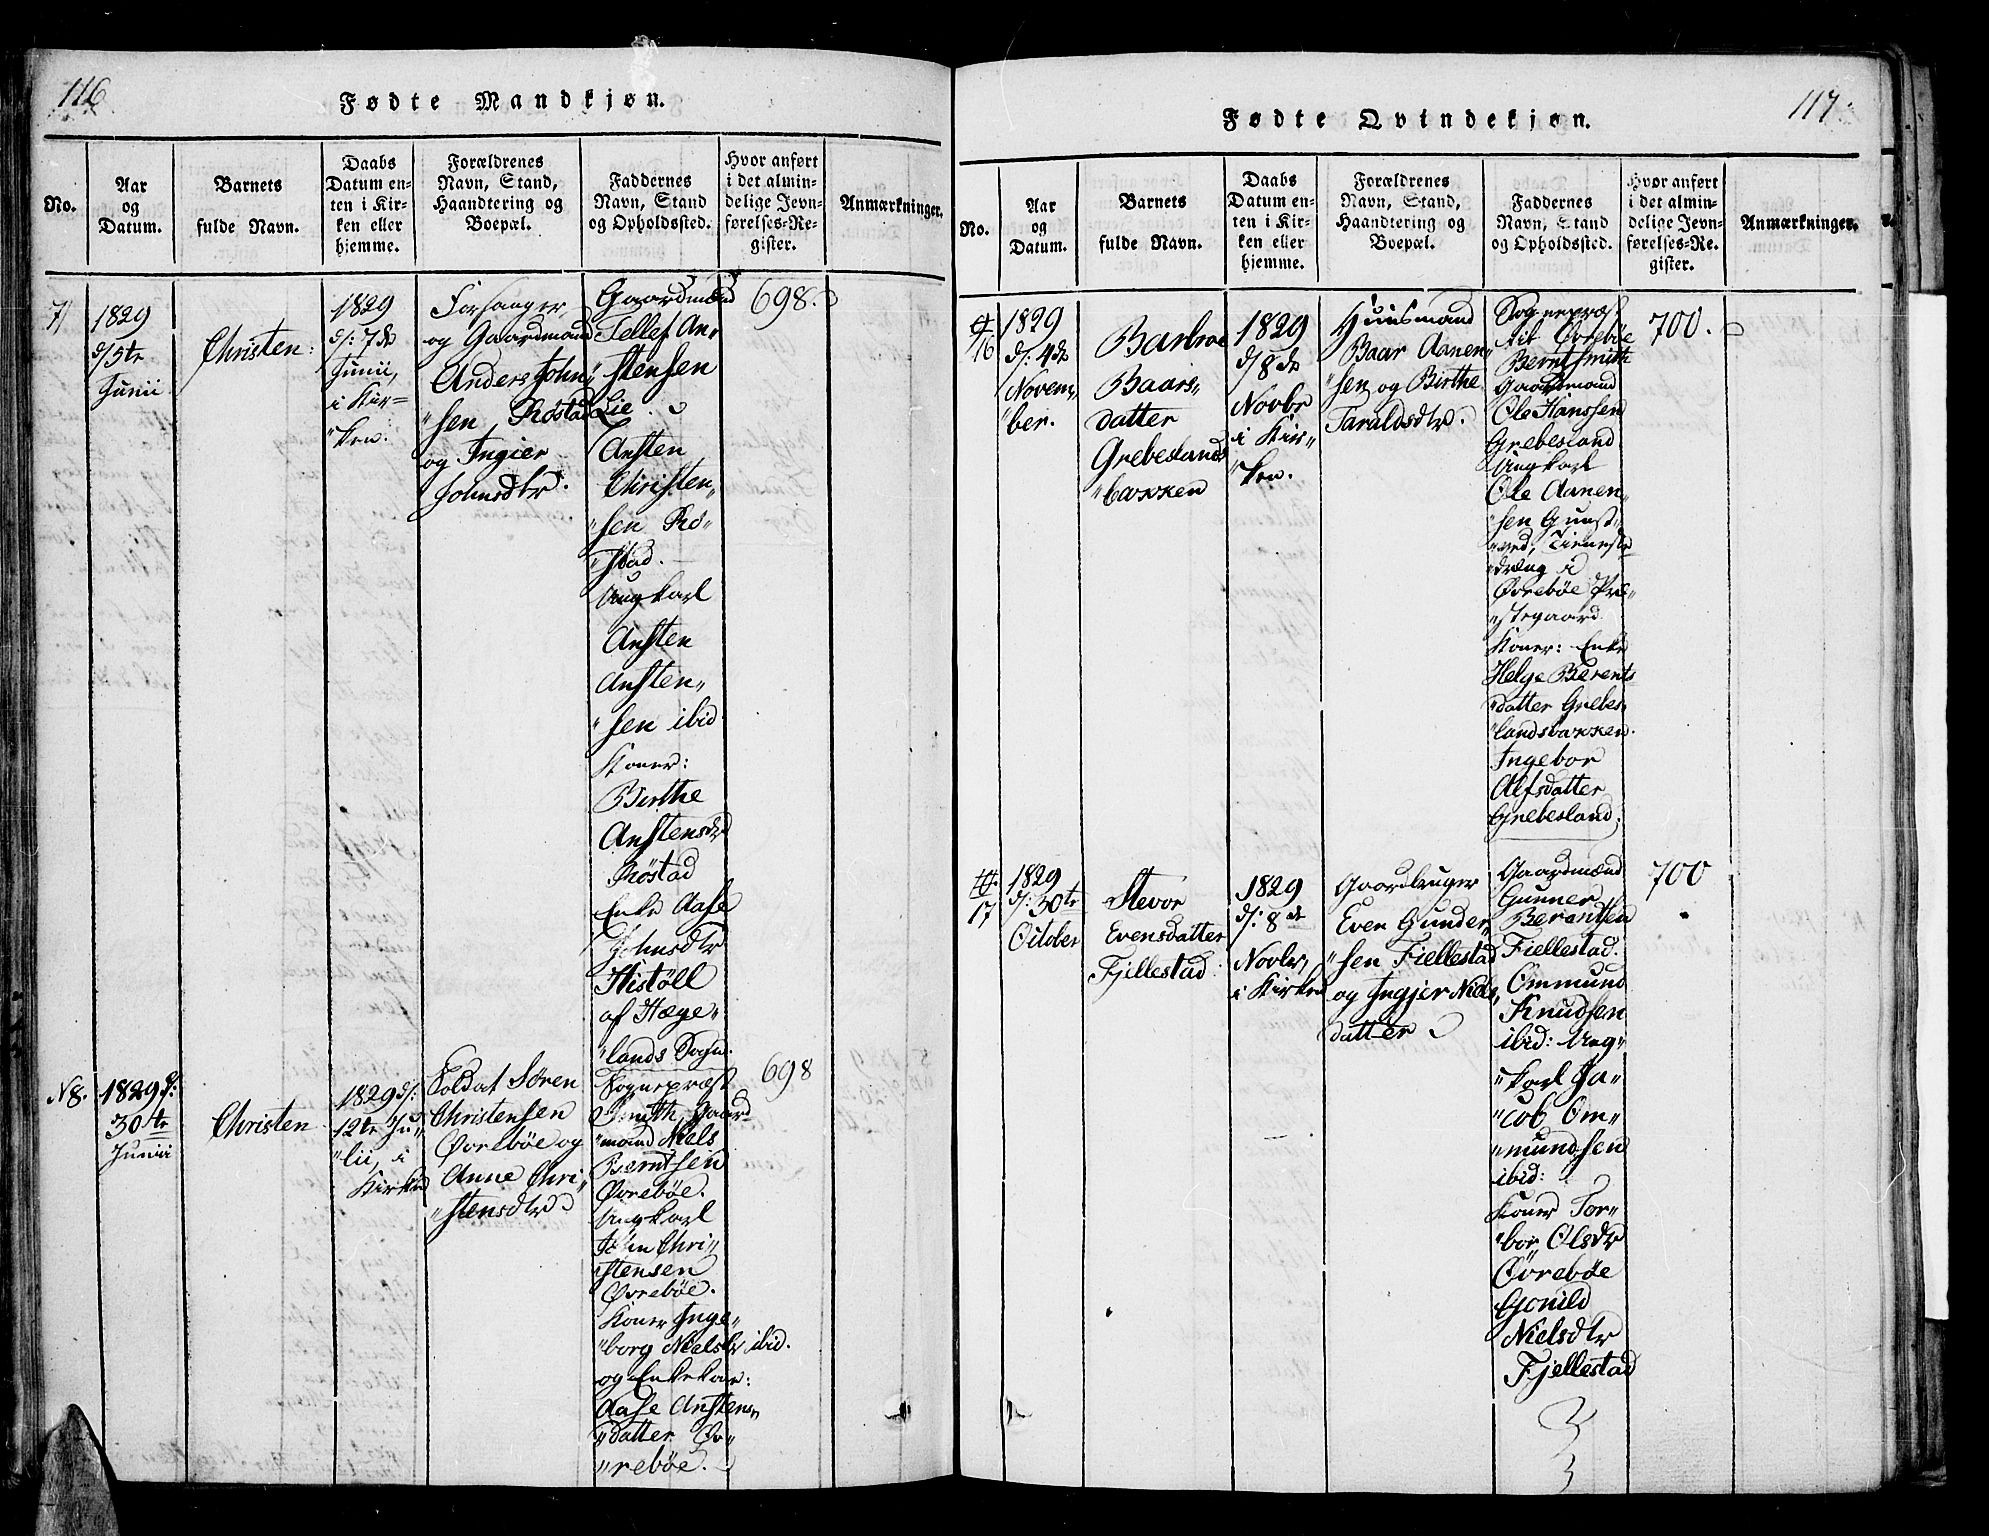 116
Fødte Mandkjøn.
No.
Aar
og
Datum.
Barnets
fulde Navn.
Daabs
Datum en-
ten i Kir-
ken eller
hjemme.
Forældrenes
Navn, Stand,
Haandtering og
Boepæl.
Faddernes
Navn, Stand
og Opholdssted.
Hvor anført
i det almin-
delige Jevn-
førelses-Re-
gister.
Anmærkninger.
7
1829
d/5te
Junii
Christen
1829
d/: 7de
Junii,
i Kir=
"ken.
Forsanger
og Gaardmand
Anders John"
"sen Røstad
og Ingier
Johnsdtr.
Gaardmænd
Tellef An"
"stensen
Lie.
Ansten
Christen"
"sen Rø"
"stad.
Ungkarl
Ansten
Ansten"
"sen ibid
Koner:
Birthe
Anstensdtr
Røstad
Enke Aase
Johnsdtr
Histöll
af Hæge"
"lands Sogn.
698.
N8.
1829 d:
30te
Junii
Christen
1829 d/:
12te Ju"
"lii, i
Kirken
Soldat Sören
Christensen
Øvrebøe og
Anne Chri"
"stensdtr
Sognepræst
Smith, Gaard
"mand Niels
Berntsen
Øvrebøe.
Ungkarl
John Chri"
"stensen
Øvrebøe.
Koner Inge"
"borg Nielsdtr ibid.
og Enkekone:
Aase Anstens"
"datter Øv"
"rebøe.
698
117
Fødte Qvindekjøn.
No.
Aar
og
Datum.
Barnets
fulde Navn.
Daabs
Datum en-
ten i Kir-
ken eller
hjemme.
Forældrenes
Navn, Stand,
Haandtering og
Boepæl.
Faddernes
Navn, Stand
og Opholdssted.
Hvor anført
i det almin-
delige Jevn-
førelses-Re-
gister.
Anmærkninger.
16
1829
d/: 4de
Novem"
"ber.
Barbroe
Baars"
datter
Grebeslands
"backken
1829
d/8de
Novbr
i Kir"
"ken.
Huusmand
Baar Aanen"
"sen og Birthe
Taraldsdtr.
Sognepræst
til Øvrebøe
Bernt Smith
Gaardmand
Ole Hanssen
Grebesland
Ungkarl
Ole Aanen"
"sen Gunst"
"ved, Tieneste
"dræng i
Øvrebøe Præ"
"stegaard
Koner: Enke
Helge Berents
"datter Grebes"
"landsbakken.
Ingebor
Alfsdatter
Grebesland.
700.
17
1829
d/: 30te
October
Stevor
Evensdatter
Fjellestad
1829
d/: 8de
Novbr,
i Kirken
Gaardbruger
Even Gunder"
"sen Fiellestad
og Ingjer Niels"
datter
Gaardmænd
Gunner
Berentsen
Fiellestad.
Ommund
Knudsen
ibid: Ung"
"karl Ja"
"cob Om"
"mundsen
ibid:
Koner Tor"
"bor Olsdtr
Øvrebøe
Gonild
Nielsdtr
Fjellestad
700